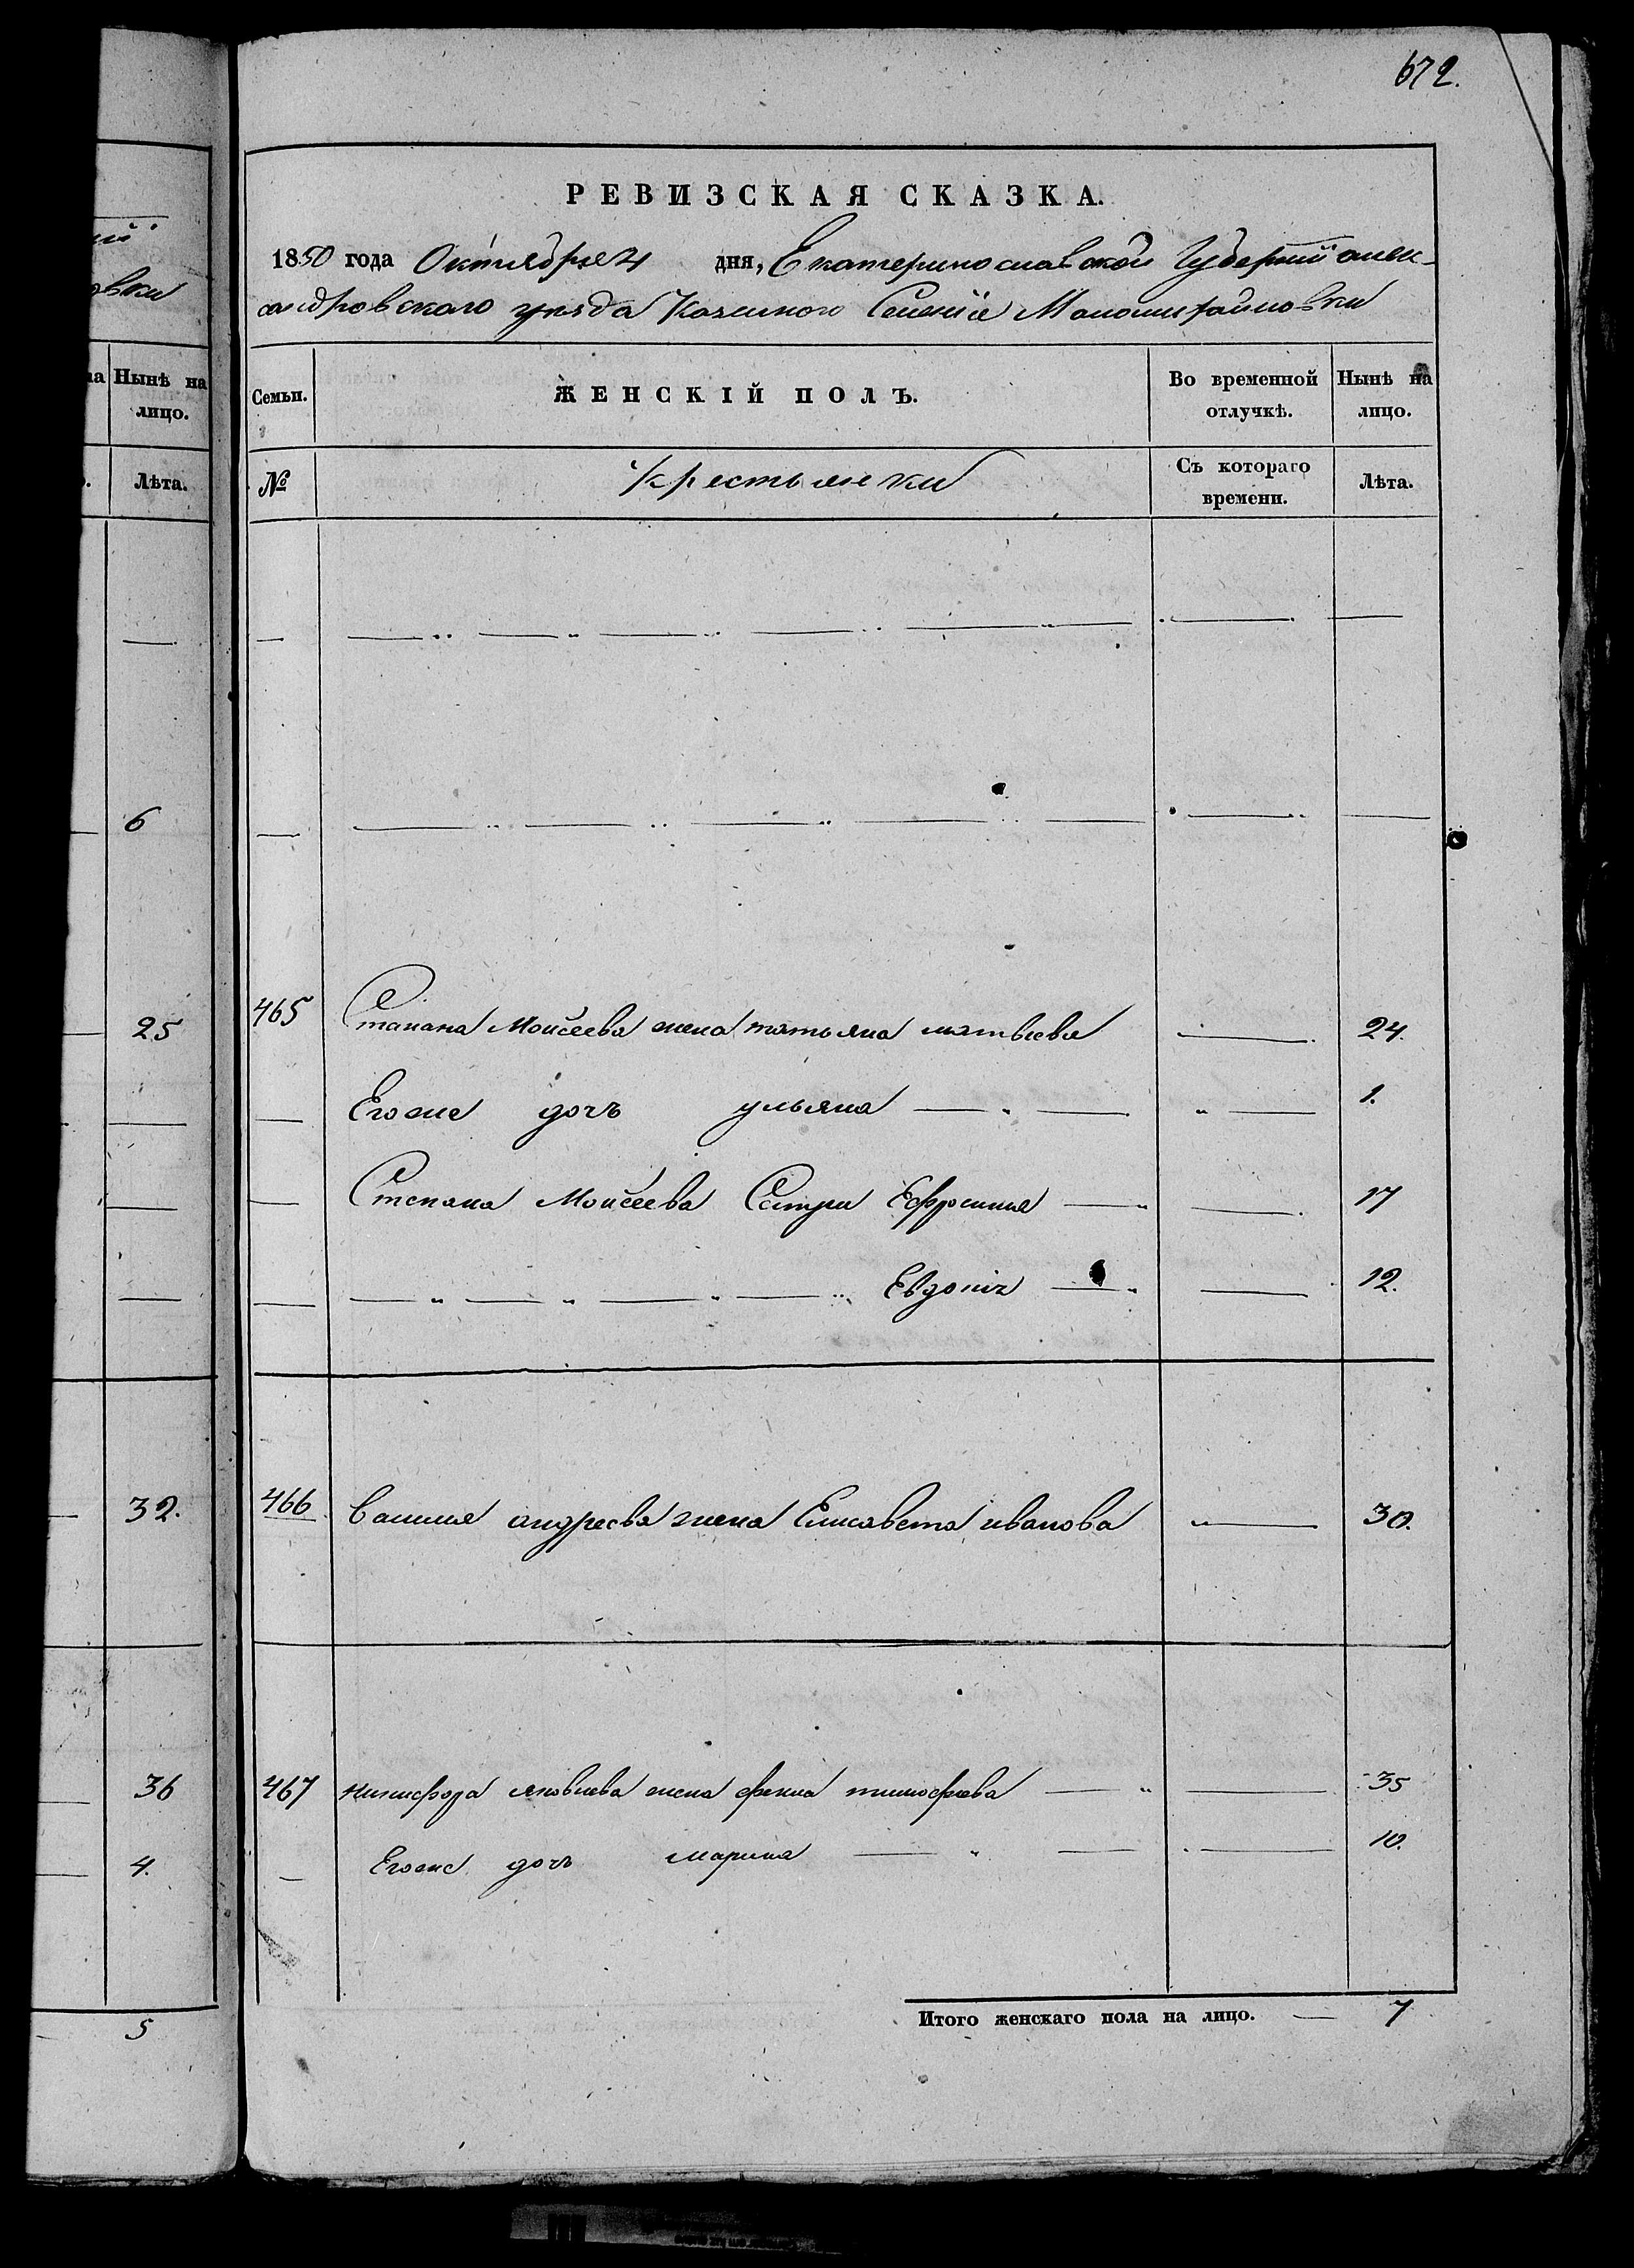 672.
РЕВИЗСКАЯ СКАЗКА.
1850 года Октября 21 дня, Екатеринославской Губернии алек-
сандровского уезда Казенного Селенія Маломихайловки
Нынѣ на
лицо.
Лѣта.
6
25
32.
36
4.
5
Семьи.
ЖЕНСКІЙ ПОЛЪ.
Во временной
отлучкѣ.
Нынѣ на
лицо.
№
Крестьянки
Съ котораго
времени.
Лѣта.
465 Степана Моисеева жена татьяна матвѣева 24.
Егоже дочь ульяна 1.
Степана Моисеева Сестры Ефросинья 17
Евдокія 12.
466 Василия андреева жена Елисавета иванова 30.
467 никифора яковлева жена фекла тимофеева 35
Егоже дочь марина 10.
Итого женскаго пола на лицо. — 7